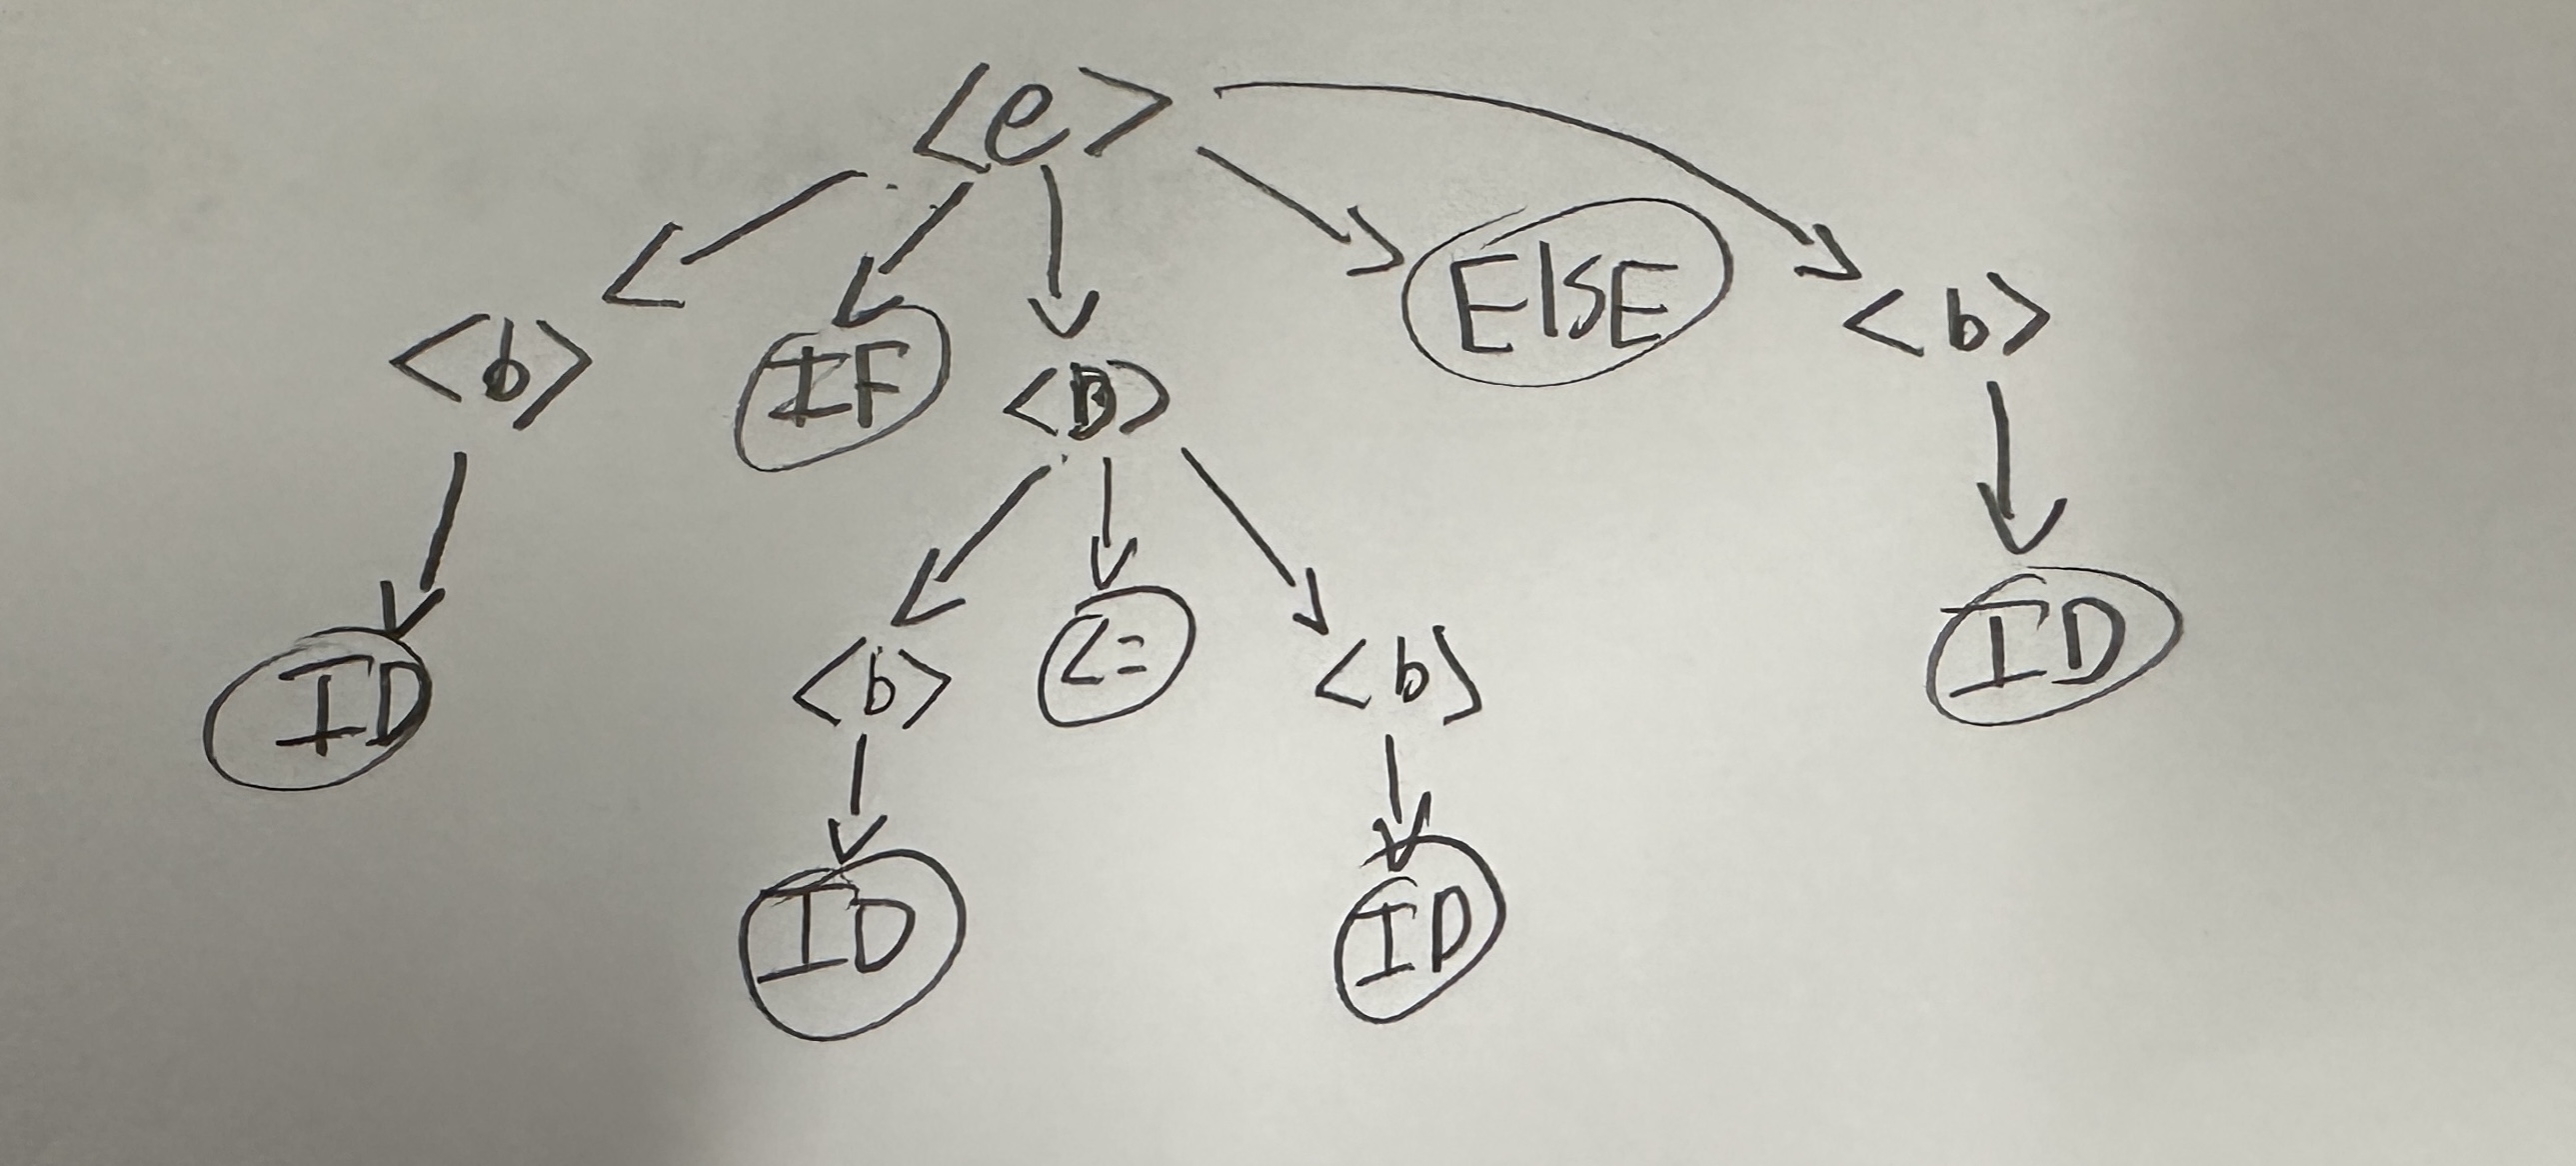 <e>
<b> IF <B> ELSE <b>
ID <b> <= <b> ID
ID ID